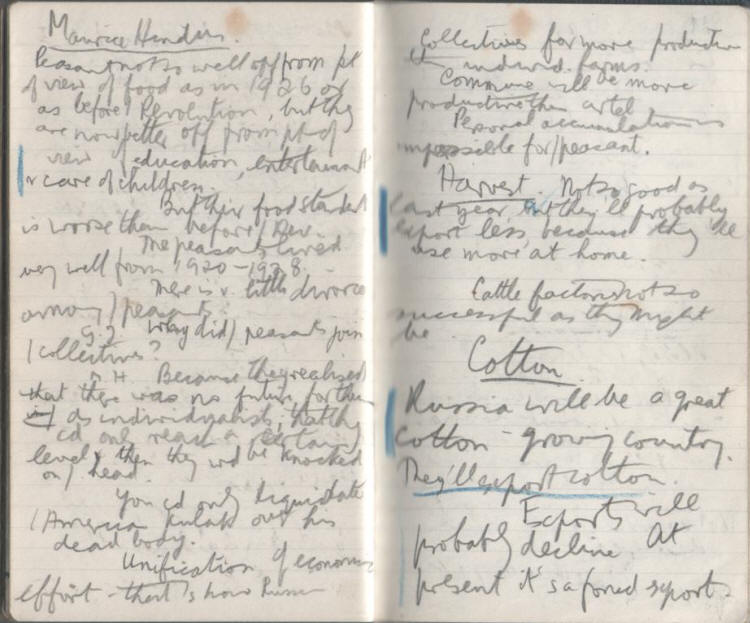 Maurice Hindus.
Peasant not so well off from pt
of view of food as in 1926 or
as before / Revolution, but they
are now better off from pt of
view of education, entertainment
or care of children.
But their food standard
is worse than before / Rev.
The peasants lived
very well from 1920-1928.
There is v. little divorce
among / peasants.
G.J. Why did / peasants join
/ collectives?
M H Because they realised
that there was no future for them
as individualists, that they
cd only reach a certain
level & then they wd be knocked
on / head.
You cd only liquidate
/ American kulak over his
dead body.
Unification of economic
effort - that's how Russia
Collectives far more productive
than individ. farms.
Commune will be more
productive than artel
Personal accumulation is
impossible for / peasant.
Harvest. Not so good as
last year, but they'll probably
export less, because they'll
use more at home.
Cattle factories not so
successful as they might
be
Cotton
Russia will be a great
cotton-growing country.
They'll export cotton.
Exports will
probably decline. At
present it's a forced export.